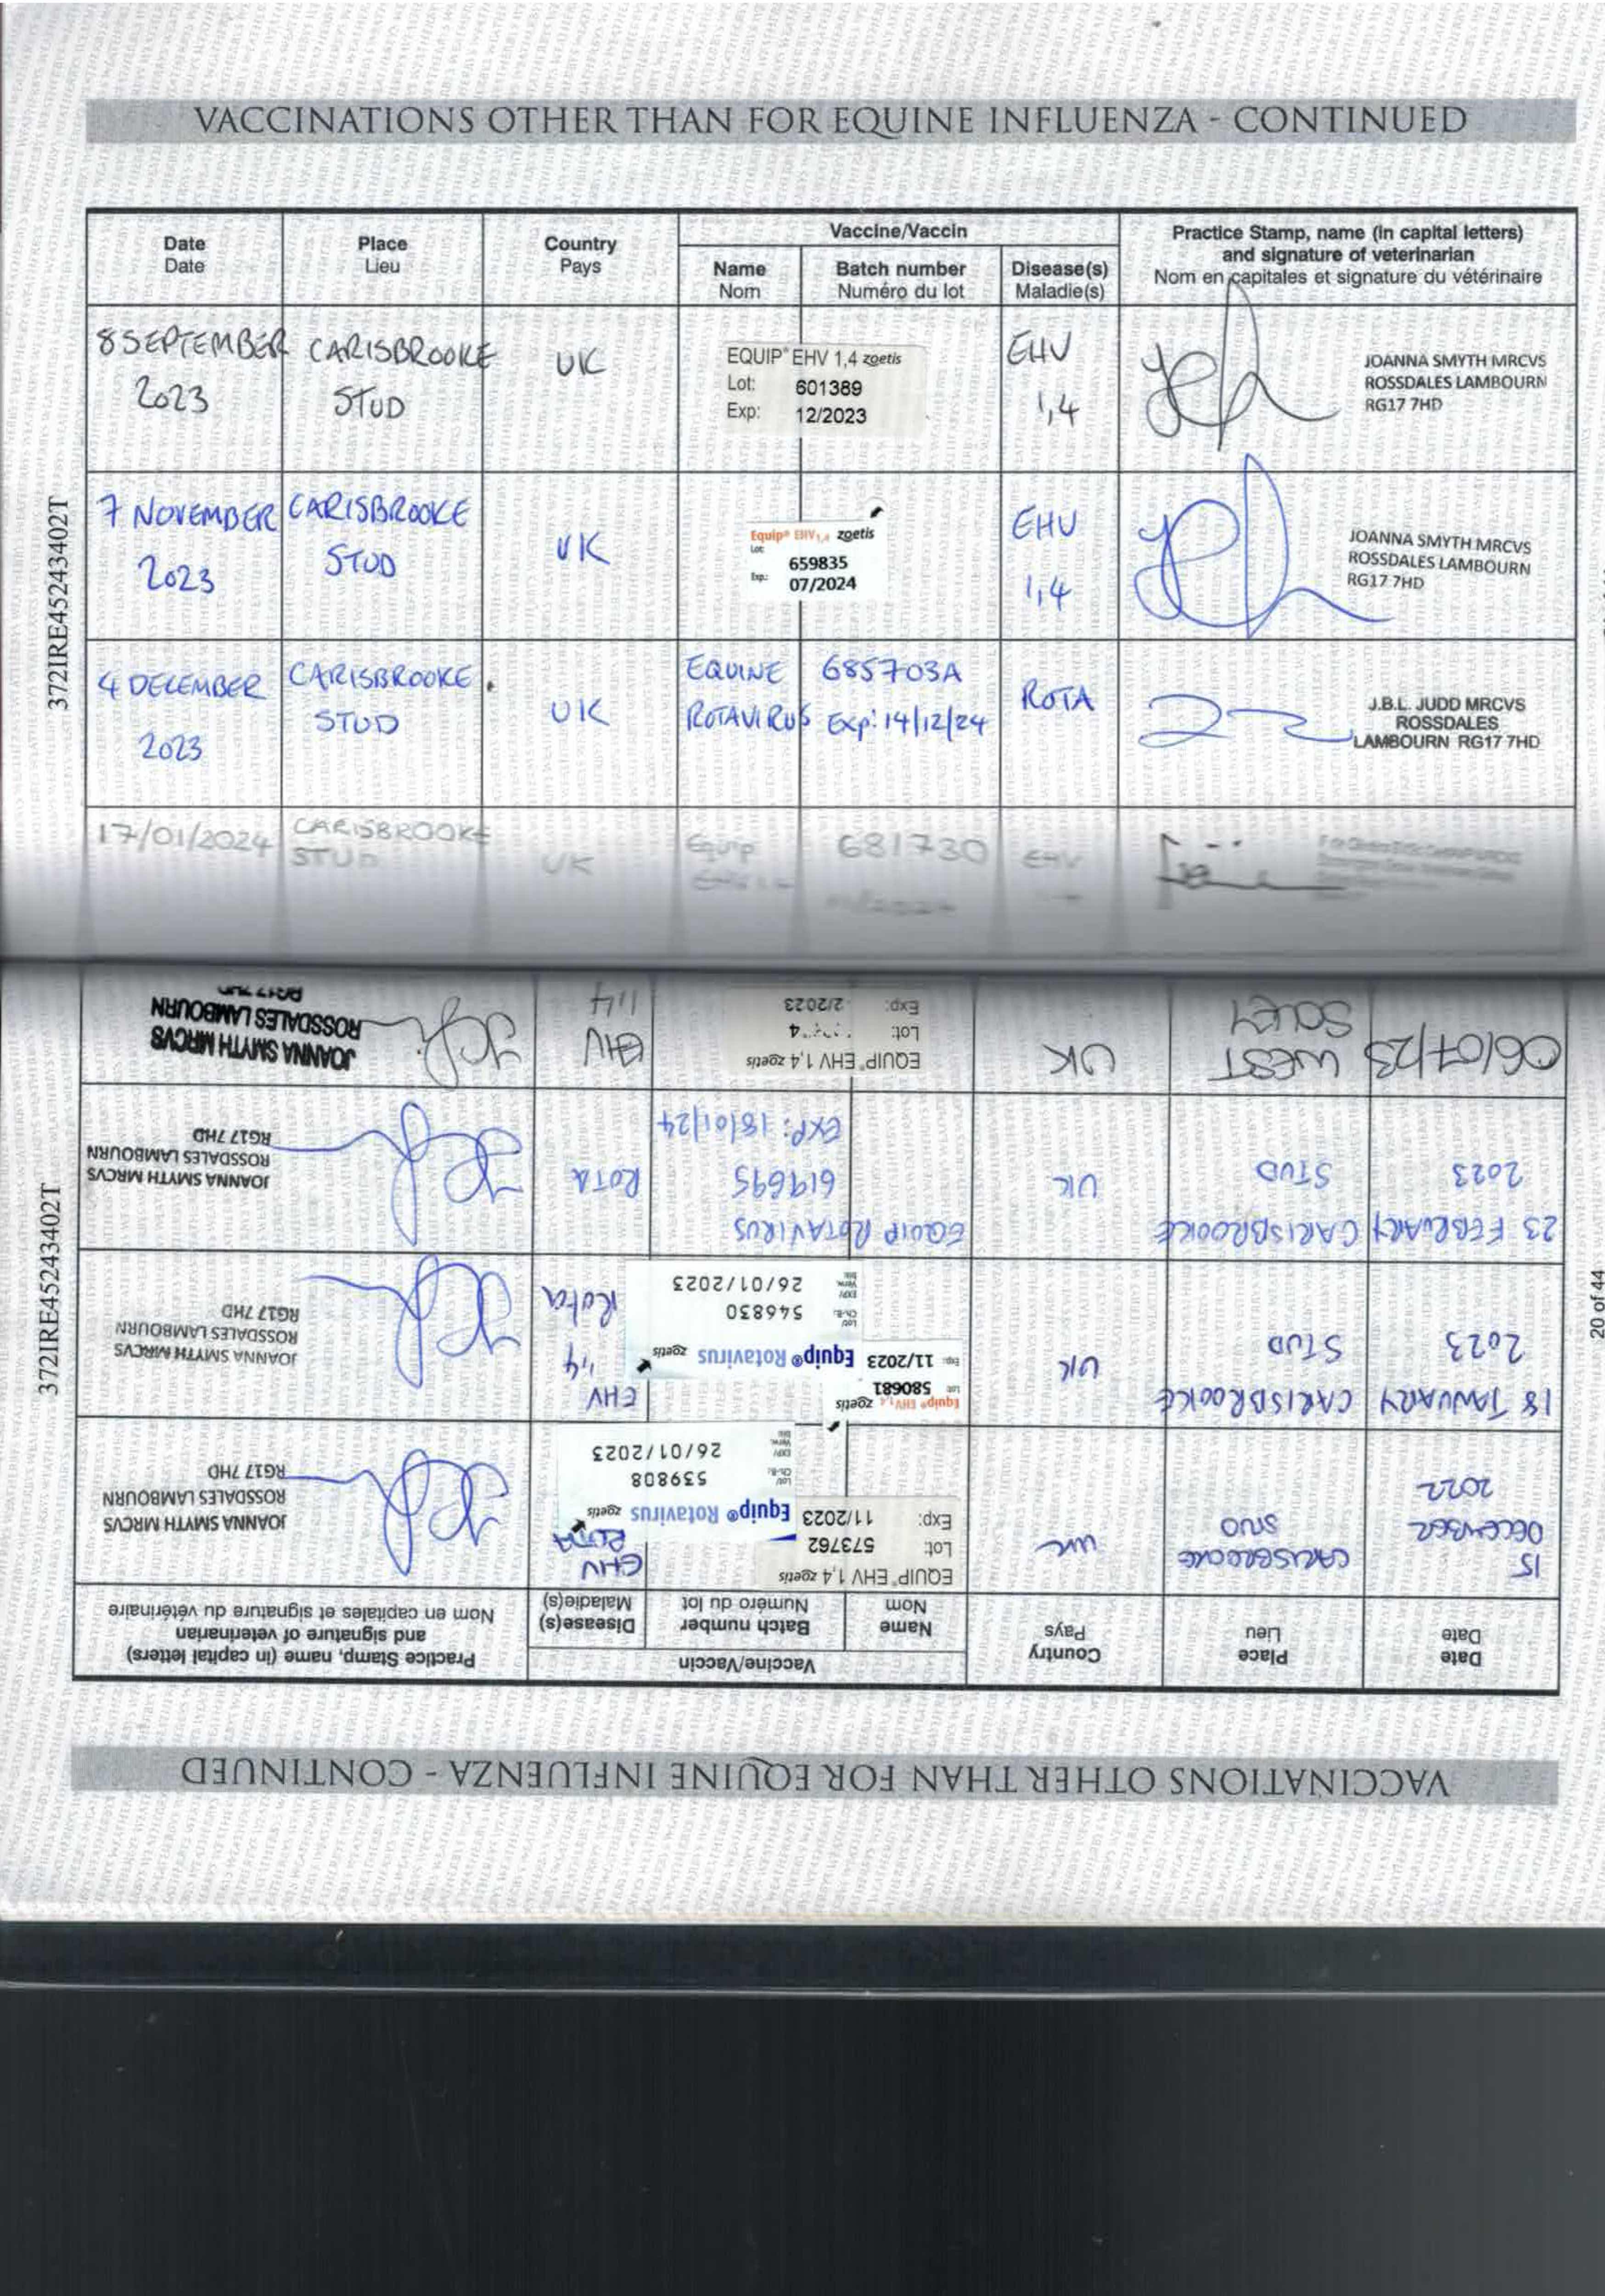 VACCINATIONS OTHER THAN FOR EQUINE INFLUENZA - CONTINUED
Date
Date
Place
Lieu
Country
Pays
Vaccine/Vaccin
Name
Nom
Batch number
Numéro du lot
Disease(s)
Maladie(s)
Practice Stamp, name (in capital letters)
and signature of veterinarian
Nom en capitales et signature du vétérinaire
8 SEPTEMBER
2023
CARISBROOKE
STUD
UK
EQUIP® EHV 1,4 zoetis
Lot: 601389
Exp: 12/2023
EHV
1,4
JOANNA SMYTH MRCVS
ROSSDALES LAMBOURN
RG17 7HD
7 NOVEMBER
2023
CARISBROOKE
STUD
UK
Equip® EHV1,4 zoetis
Lot:
659835
Exp.: 07/2024
EHV
1,4
JOANNA SMYTH MRCVS
ROSSDALES LAMBOURN
RG17 7HD
4 DECEMBER
2023
CARISBROOKE
STUD
UK
EQUINE
ROTAVIRUS
685703A
Exp: 14/12/24
ROTA
J.B.L. JUDD MRCVS
ROSSDALES
LAMBOURN RG17 7HD
17/01/2024
CARISBROOKE
STUD
UK
Equip
681730
EHV
372IRE45243402T
VACCINATIONS OTHER THAN FOR EQUINE INFLUENZA - CONTINUED
Date
Date
Place
Lieu
Country
Pays
Vaccine/Vaccin
Name
Nom
Batch number
Numéro du lot
Disease(s)
Maladie(s)
Practice Stamp, name (in capital letters)
and signature of veterinarian
Nom en capitales et signature du vétérinaire
15
DECEMBER
2022
CARISBROOKE
STUD
UK
EQUIP® EHV 1,4 zoetis
Lot: 573762
Exp: 11/2023
Equip® Rotavirus zoetis
Lot/
Ch.-B.: 539808
EXP/
Verw.
bis: 26/01/2023
EHV
ROTA
JOANNA SMYTH MRCVS
ROSSDALES LAMBOURN
RG17 7HD
18 JANUARY
2023
CARISBROOKE
STUD
UK
Equip® EHV1,4 zoetis
Lot: 580681
Exp.: 11/2023
Equip® Rotavirus zoetis
Lot/
Ch.-B.: 546830
EXP/
Verw.
bis: 26/01/2023
EHV
1,4
Rota
JOANNA SMYTH MRCVS
ROSSDALES LAMBOURN
RG17 7HD
23 FEBRUARY
2023
CARISBROOKE
STUD
UK
EQUIP ROTAVIRUS
619695
EXP: 18/01/24
ROTA
JOANNA SMYTH MRCVS
ROSSDALES LAMBOURN
RG17 7HD
06/07/23
WEST
SOLEY
UK
EQUIP® EHV 1,4 zoetis
Lot:
Exp: 2/2023
EHV
1,4
JOANNA SMYTH MRCVS
ROSSDALES LAMBOURN
RG17 7HD
372IRE45243402T
20 of 44